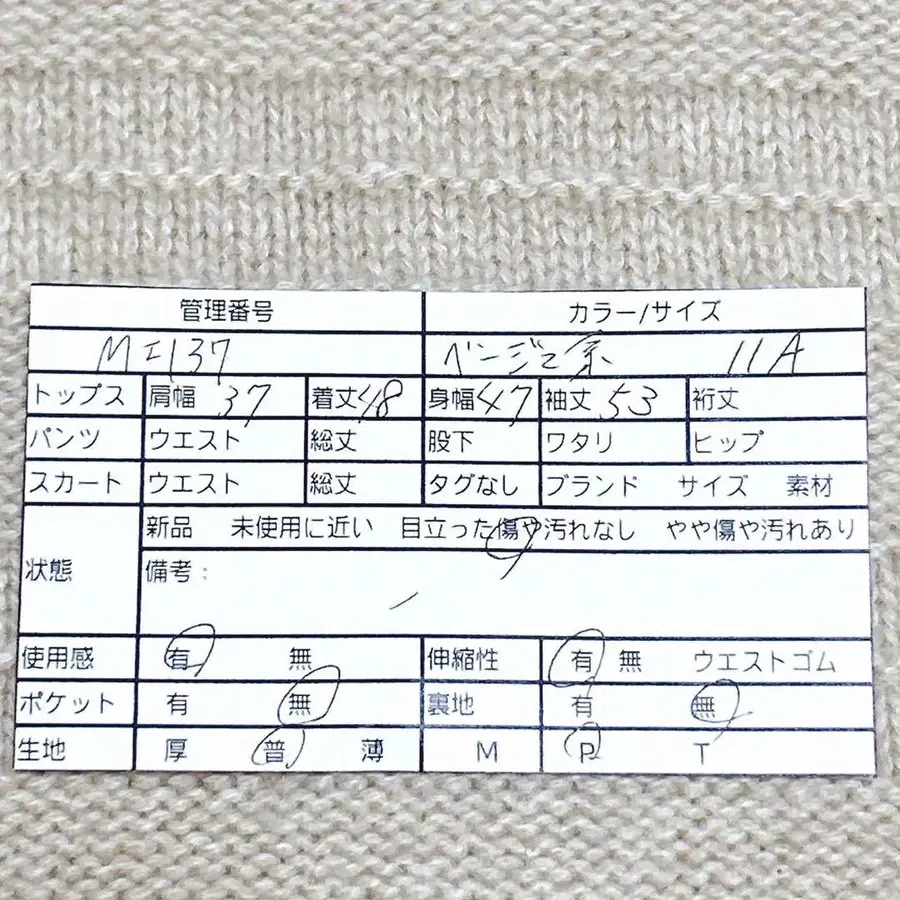 管理番号 カラー/サイズ
MI137 ベージュ系 11A
トップス 肩幅 37 着丈 48 身幅 47 袖丈 53 裄丈
パンツ ウエスト 総丈 股下 ワタリ ヒップ
スカート ウエスト 総丈 タグなし ブランド サイズ 素材
状態 新品 未使用に近い 目立った傷や汚れなし やや傷や汚れあり
備考:
使用感 有 無 伸縮性 有 無 ウエストゴム
ポケット 有 無 裏地 有 無
生地 厚 普 薄 M P T